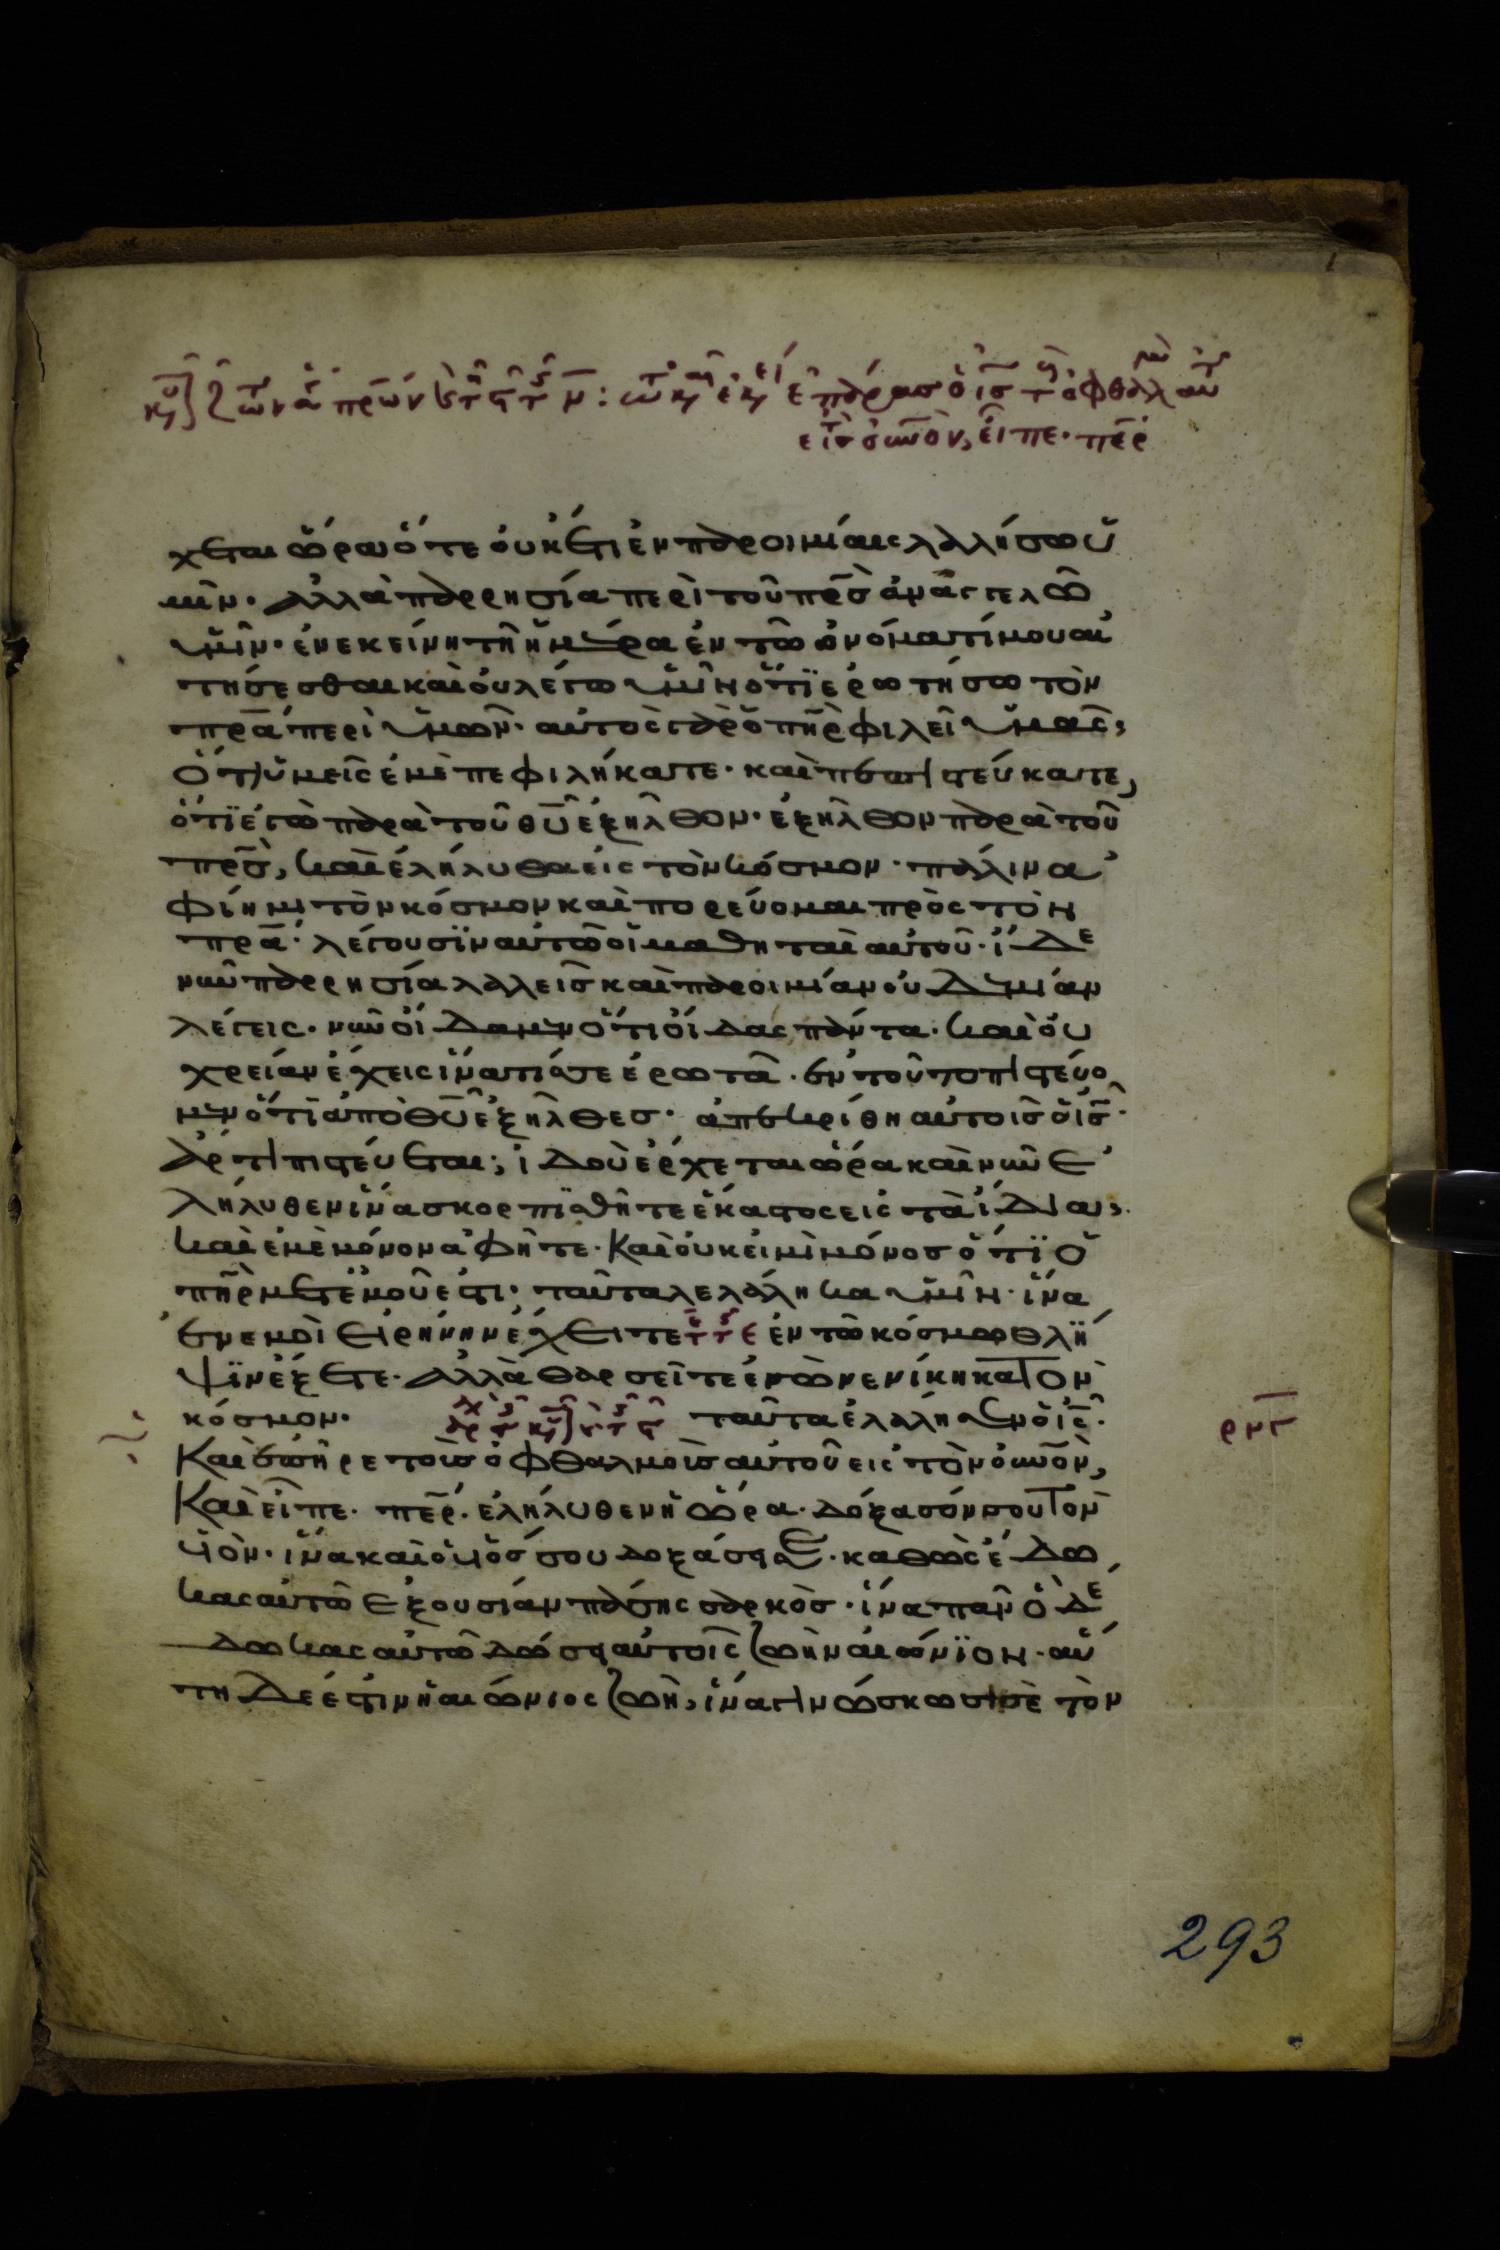 ἐπάρας ὁ ἰς τ ὀφθαλμ αυτ
εἰς τ οὐνον, εἶπε· περ
χεται ὥρα ὅτε οὐκέτι ἐν παροιμίαις λαλήσω ὑ
μῖν· ἀλλὰ παρρησία περὶ τοῦ πρσ ἀναγγελῶ
ὑμῖν· ἐν εκείνη τῆ ἡμέρα ἐν τῶ ὀνόματί μου αἰ
τήσεσθαι καὶ οὐ λέγω ὑμῖν ὅτϊ ερωτήσω τὸν
πρα περὶ ὑμῶν· αὐτὸς γὰρ ὁ πηρ φιλεῖ ὑμᾶς,
ὅτι ὑμεῖς ἐμὲ πεφιλήκατε· καὶ πεπιστεύκατε,
ὅτϊ ἐγὼ παρὰ τοῦ θυ ἐξῆλθον· ἐξῆλθον παρὰ τοῦ
πρσ, καὶ ἐλήλυθα εἰς τὸν κόσμον· πάλιν α
φίημι τὸν κόσμον καὶ πορεύομαι πρὸς τὸν
πρα· λέγουσϊν αὐτῶ οἱ μαθηταὶ αὐτοῦ· ἴδε
νῦν παρρησία λαλεῖς καὶ παροιμίαν οὐδεμίαν
λέγεις· νῦν οἴδαμεν ὅτι οἶδας πάντα· καὶ οὐ
χρείαν ἔχεις ἵνα τίς σε ἐρωτᾶ· ἐν τούτω πιστεύο
μεν ὅτϊ ἀπὸ θυ ἐξῆλθες· ἀπεκρίθη αὐτοῖς ὁ ις·
ἄρτι πιστεύεται; ἰδοὺ ἔρχεται ὥρα καὶ νῦν ἐ
λήλυθεν ἵνα σκορπϊσθῆτε ἕκαστος εἰς τὰ ἴδια,
καὶ ἐμὲ μόνον ἀφῆτε· Καὶ οὐκ εἰμὶ μόνος ὅτϊ ὁ
πηρ μετ ἐμοῦ ἐστι· ταῦτα λελάληκα ὑμῖν· ἵνα
ἐν εμοὶ εἰρήνην ἔχειτε ἐν τῶ κόσμω θλϊ
ψϊν ἕξετε· ἀλλὰ θαρσεῖτε ἐγὼ νενίκηκα τὸν
κόσμον· ταῦτα ἐλάλησεν ὁ ις·
Καὶ ἐπῆρε τοὺς ὀφθαλμοὺς αὐτοῦ εἰς τὸν οὐνον,
Καὶ εἶπε· περ· ἐλήλυθεν ἡ ὥρα· δόξασόν σου τὸν
υἱὸν· ἵνα καὶ ὁ υἱός σου δοξάση σε· καθὼς ἔδω
κας αὐτῶ ἐξουσίαν πάσης σαρκὸς· ἵνα πᾶν ὃ δέ
δωκας αὐτῶ δώση αὐτοῖς ζωὴν αἰώνϊον· αὕ
τη δέ ἐστιν ἡ αἰώνιος ζωὴ, ἵνα γινώσκωσι σὲ τὸν
293